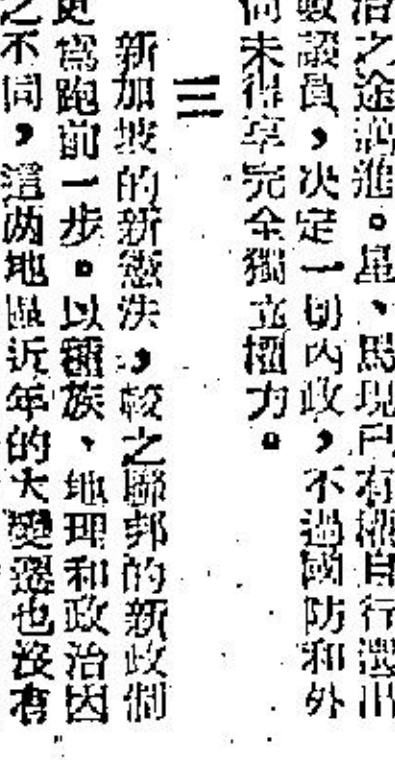 治之途邁進。星、馬現已有權自行選出
數議員，决定一切内政，不過國防和外
尚未得享完全獨立權力。
三
新加坡的新憲法，較之聯邦的新政制
更爲跑前一步。以種族、地理和政治因
之不同，這两地區近年的大變遷也沒有